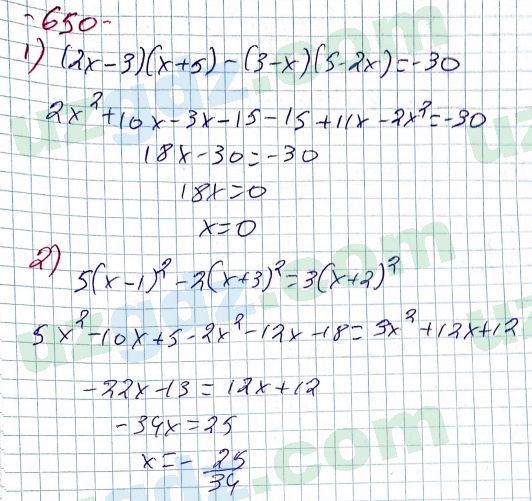 -650-
1) (2x-3)(x+5)-(3-x)(5-2x)=-30
2x²+10x-3x-15-15+11x-2x²=-30
18x-30=-30
18x=0
x=0
2) 5(x-1)²-2(x+3)²=3(x+2)²
5x²-10x+5-2x²-12x-18=3x²+12x+12
-22x-13=12x+12
-34x=25
x=-25/34
uzgdz.com